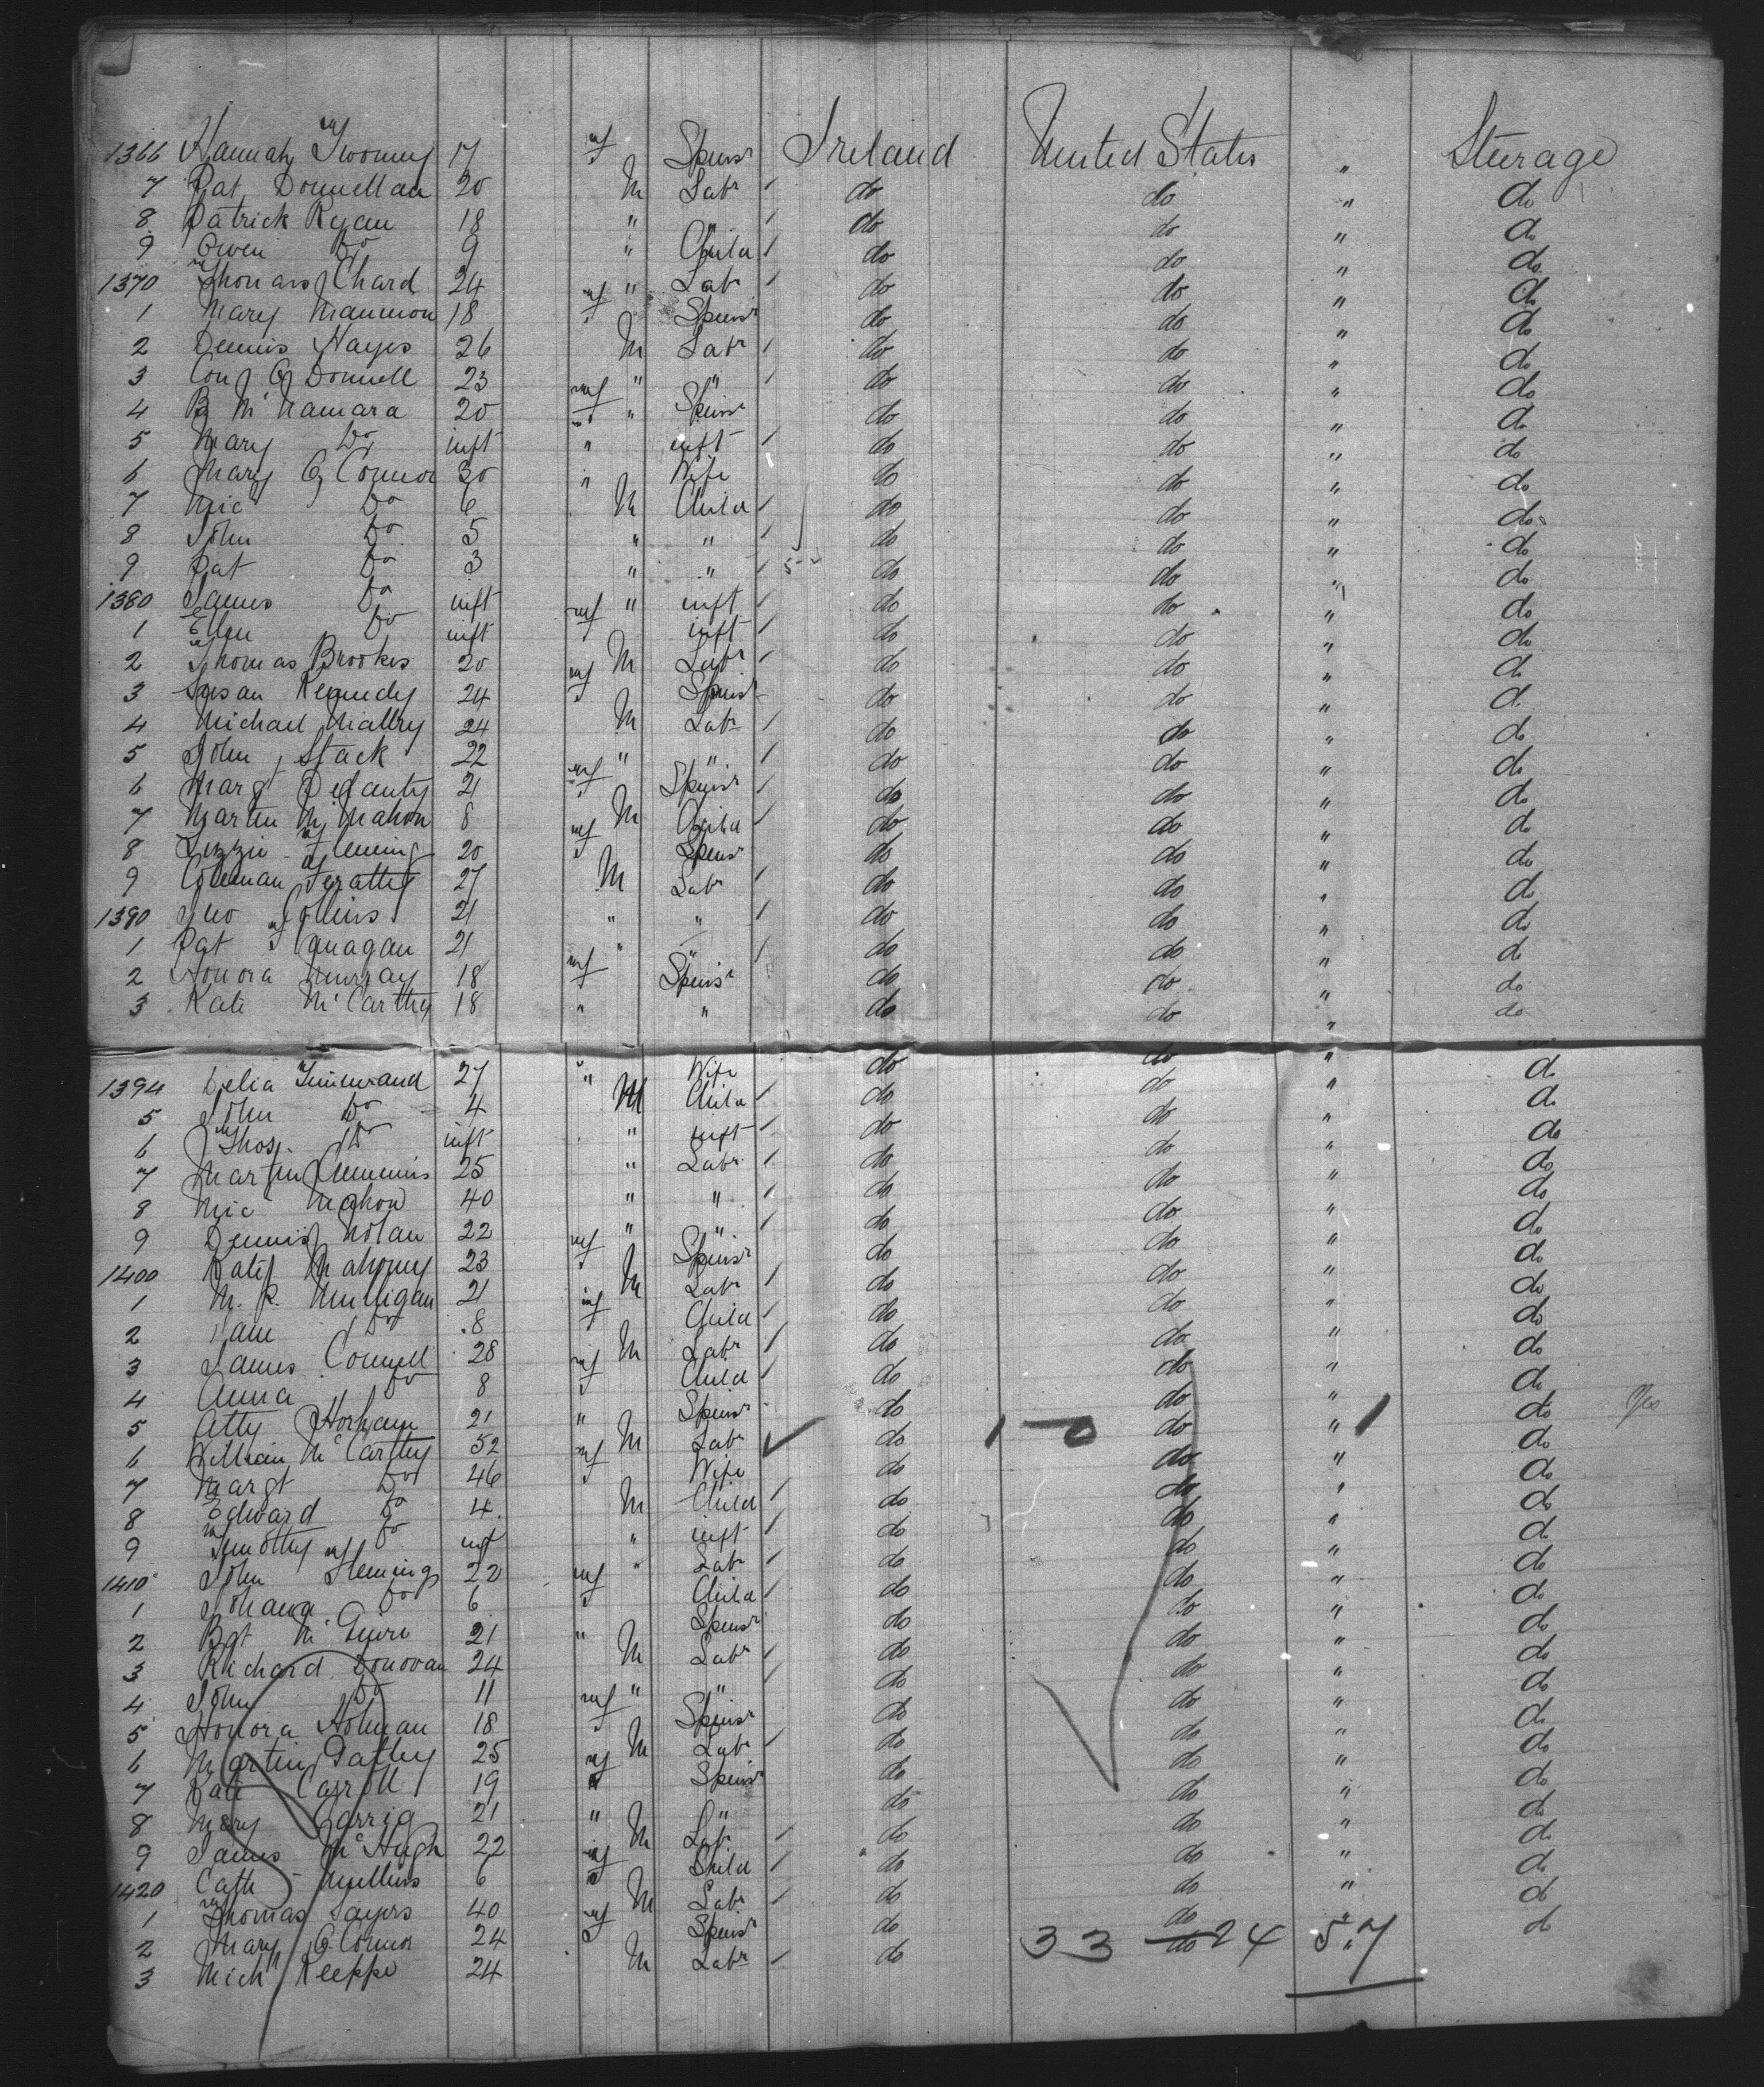 1366 Hannah Twomey 17 f Spinsr Ireland United States " Steerage
7 Pat Donnellan 20 M Labr do do " do
8 Patrick Ryan 18 " " do do " do
9 Owen Do 9 " Child do do " do
1370 Thomas Chard 24 " Labr do do " do
1 Mary Mannion 18 f Spinsr do do " do
2 Dennis Hayes 26 M Labr do do " do
3 Con O'Donnell 23 " " do do " do
4 B McNamara 20 f Spinsr do do " do
5 Mary Do inft " inft do do " do
6 Mary O'Connor 30 " Wife do do " do
7 Mic Do 6 M Child do do " do
8 John Do 5 " " do do " do
9 Pat Do 3 " " do do " do
1380 James Do inft " inft do do " do
1 Ellen Do inft f inft do do " do
2 Thomas Brookes 20 M Labr do do " do
3 Susan Kennedy 24 f Spinsr do do " do
4 Michael Mallry 24 M Labr do do " do
5 John Stack 22 " " do do " do
6 Margt Delanty 21 f Spinsr do do " do
7 Martin McMahon 8 M Child do do " do
8 Lizzie Fleming 20 f Spinsr do do " do
9 Coleman 27 M Labr do do " do
1390 Jno Collins 21 " " do do " do
1 Pat Flanagan 21 " " do do " do
2 Honora Murray 18 f Spinsr do do " do
3 Kate McCarthy 18 " " do do " do
1394 Delia 27 " Wife do do " do
5 John Do 4 M Child do do " do
6 Thos. Do inft " inft do do " do
7 Martin Cummins 25 " Labr do do " do
8 Mic Mahon 40 " " do do " do
9 Dennis Nolan 22 " " do do " do
1400 Kate Mahoney 23 f Spinsr do do " do
1 M. P. Mulligan 21 M Labr do do " do
2 Do 8 f Child do do " do
3 James Connell 28 M Labr do do " do
4 Anna Do 8 f Child do do " do
5 Atty Horhan 21 " Spinsr do do " do Yes
6 William McCarthy 52 M Labr do 1-0 do " 1 do
7 Margt Do 46 f Wife do do " do
8 Edward Do 4 M Child do do " do
9 Timothy Do inft " inft do do " do
1410 John Fleming 22 " Labr do do " do
1 Johana Do 6 f Child do do " do
2 Bgt McGuire 21 " Spinsr do do " do
3 Richard Donovan 24 M Labr do do " do
4 John Do 11 " " do do " do
5 Honora Holman 18 f Spinsr do do " do
6 Martin Gathy 25 M Labr do do " do
7 Kate Carroll 19 f Spinsr do do " do
8 Mary Carrig 21 " " do do " do
9 James McHugh 22 M Labr do do " do
1420 Cath Mullins 6 f Child do do " do
1 Thomas Sayers 40 M Labr do do " do
2 Mary O'Connor 24 f Spinsr do do " do
3 Mich Keeppe 24 M Labr do do "
33 24 57